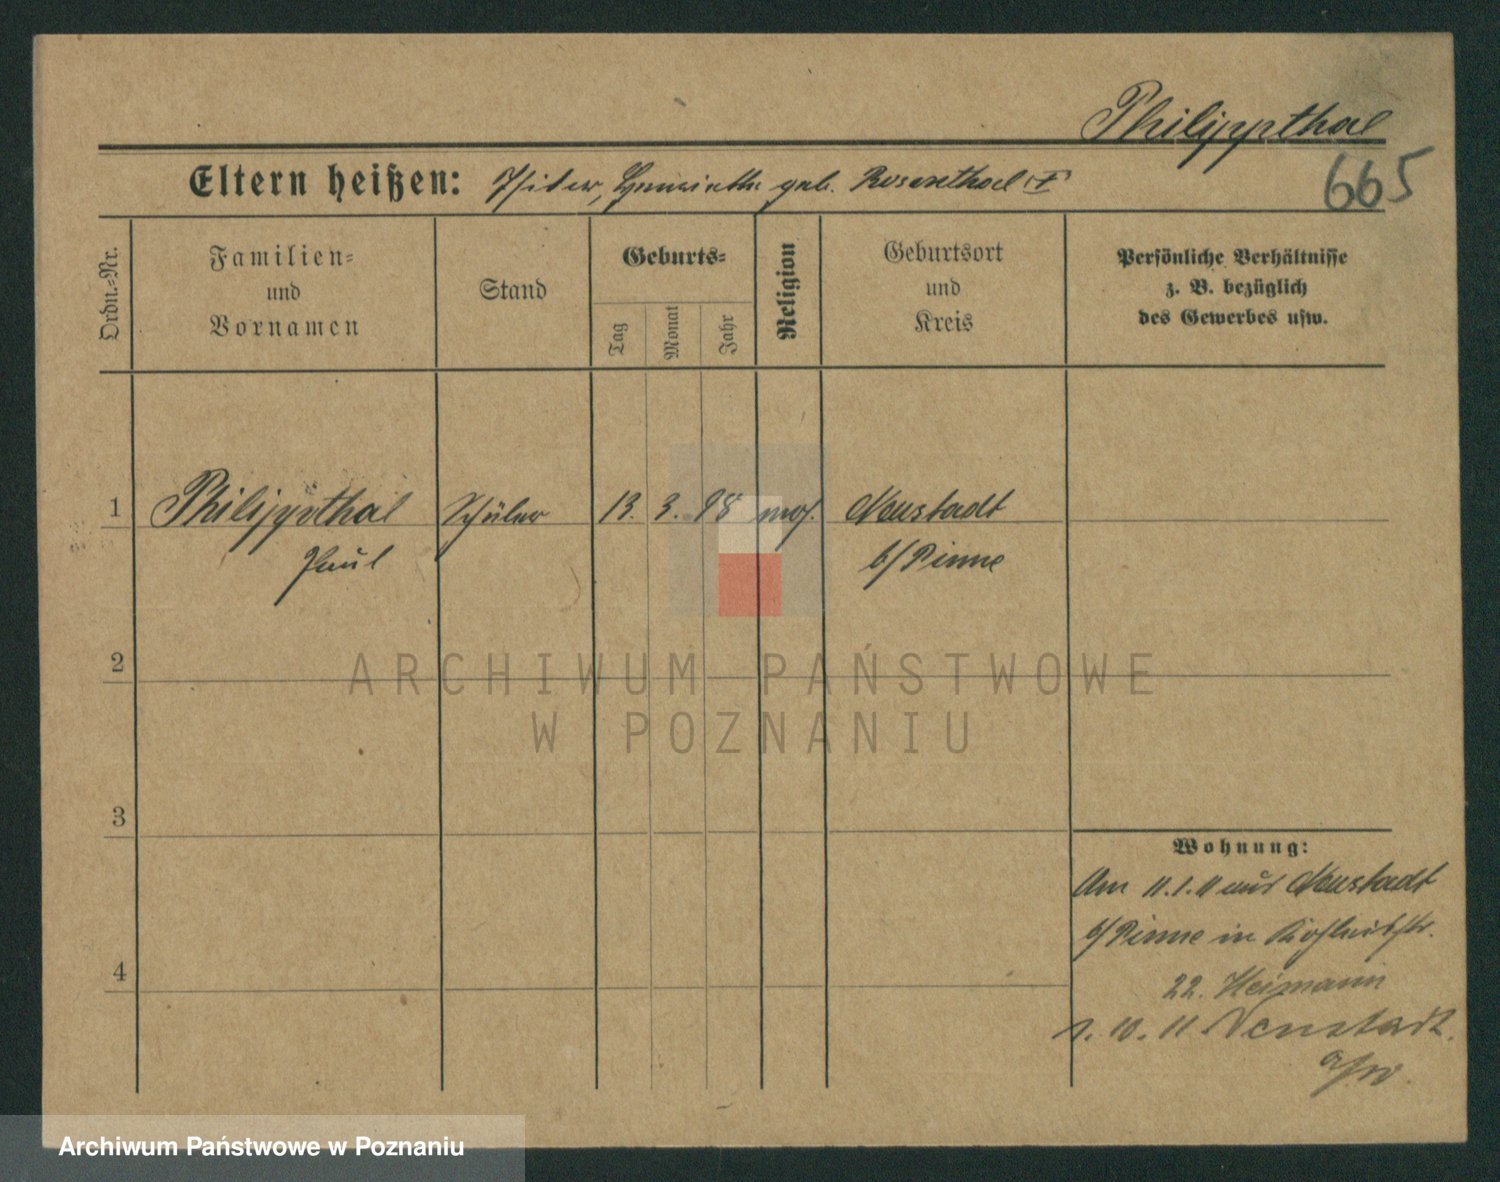 Philippthal
665
Eltern heißen: Isidor, Henriette geb. Rosenthal
Ordn.-Nr.
Familien-
und
Vornamen
Stand
Geburts-
Tag
Monat
Jahr
Religion
Geburtsort
und
Kreis
Persönliche Verhältnisse
z. B. bezüglich
des Gewerbes usw.
1 Philippthal Schüler 13. 3. 98 mos. Neustadt
Paul b/Pinne
2
3
4
Wohnung:
Am 11.1.11 aus Neustadt
b/Pinne in
22. Heimann
1. 10. 11 Neustadt
ARCHIWUM PAŃSTWOWE
W POZNANIU
Archiwum Państwowe w Poznaniu